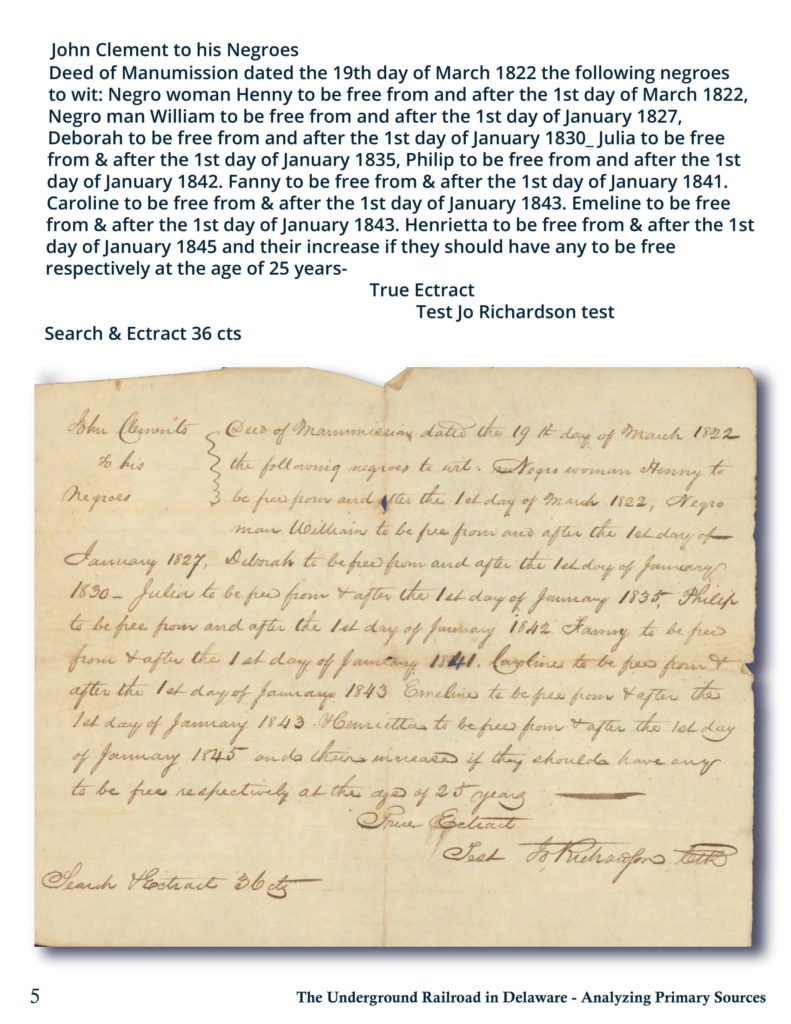 John Clement to his Negroes
Deed of Manumission dated the 19th day of March 1822 the following negroes
to wit: Negro woman Henny to be free from and after the 1st day of March 1822,
Negro man William to be free from and after the 1st day of January 1827,
Deborah to be free from and after the 1st day of January 1830_ Julia to be free
from & after the 1st day of January 1835, Philip to be free from and after the 1st
day of January 1842. Fanny to be free from & after the 1st day of January 1841.
Caroline to be free from & after the 1st day of January 1843. Emeline to be free
from & after the 1st day of January 1843. Henrietta to be free from & after the 1st
day of January 1845 and their increase if they should have any to be free
respectively at the age of 25 years-
True Ectract
Test Jo Richardson test
Search & Ectract 36 cts
John Clements
to his
Negroes
Deed of Manumission dated the 19th day of March 1822
the following negroes to wit: Negro woman Henny to
be free from and after the 1st day of March 1822, Negro
man William to be free from and after the 1st day of
January 1827, Deborah to be free from and after the 1st day of January
1830- Julia to be free from & after the 1st day of January 1835, Philip
to be free from and after the 1st day of January 1842 Fanny to be free
from & after the 1st day of January 1841. Caroline to be free from &
after the 1st day of January 1843 Emeline to be free from & after the
1st day of January 1843. Henrietta to be free from & after the 1st day
of January 1845 and their increase if they should have any
to be free respectively at the age of 25 years
True Ectract
Test Jo Richardson
Search & Ectract 36 cts
5
The Underground Railroad in Delaware - Analyzing Primary Sources